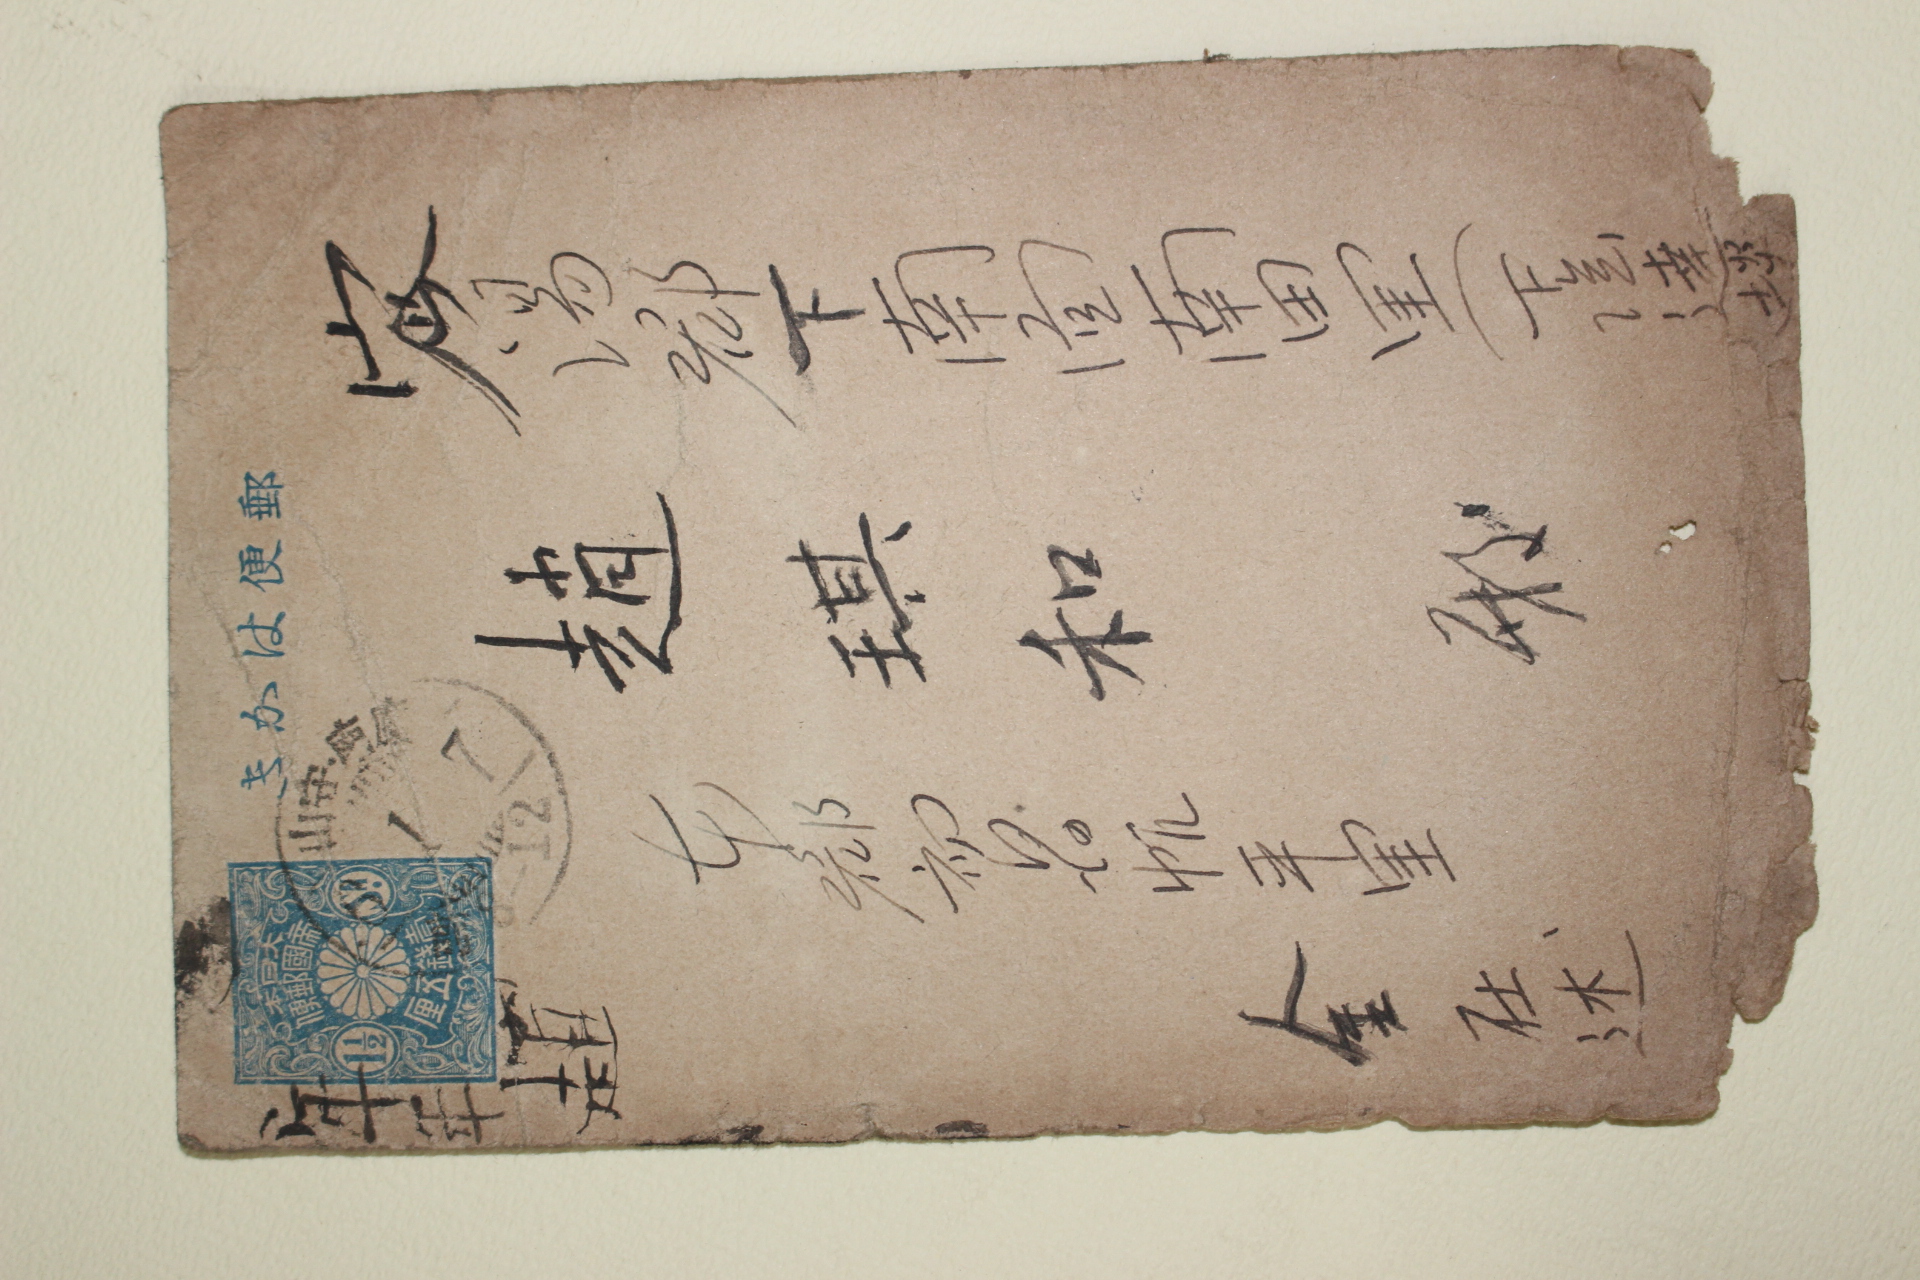 郵便はかき
大日本
帝國郵便
1½ Sn.
壹錢五厘
守山
1
7
12
密陽郡下南面南田里(下陰達
趙琪和 殿
本郡初同面帆平里
金在述
年
年
趙